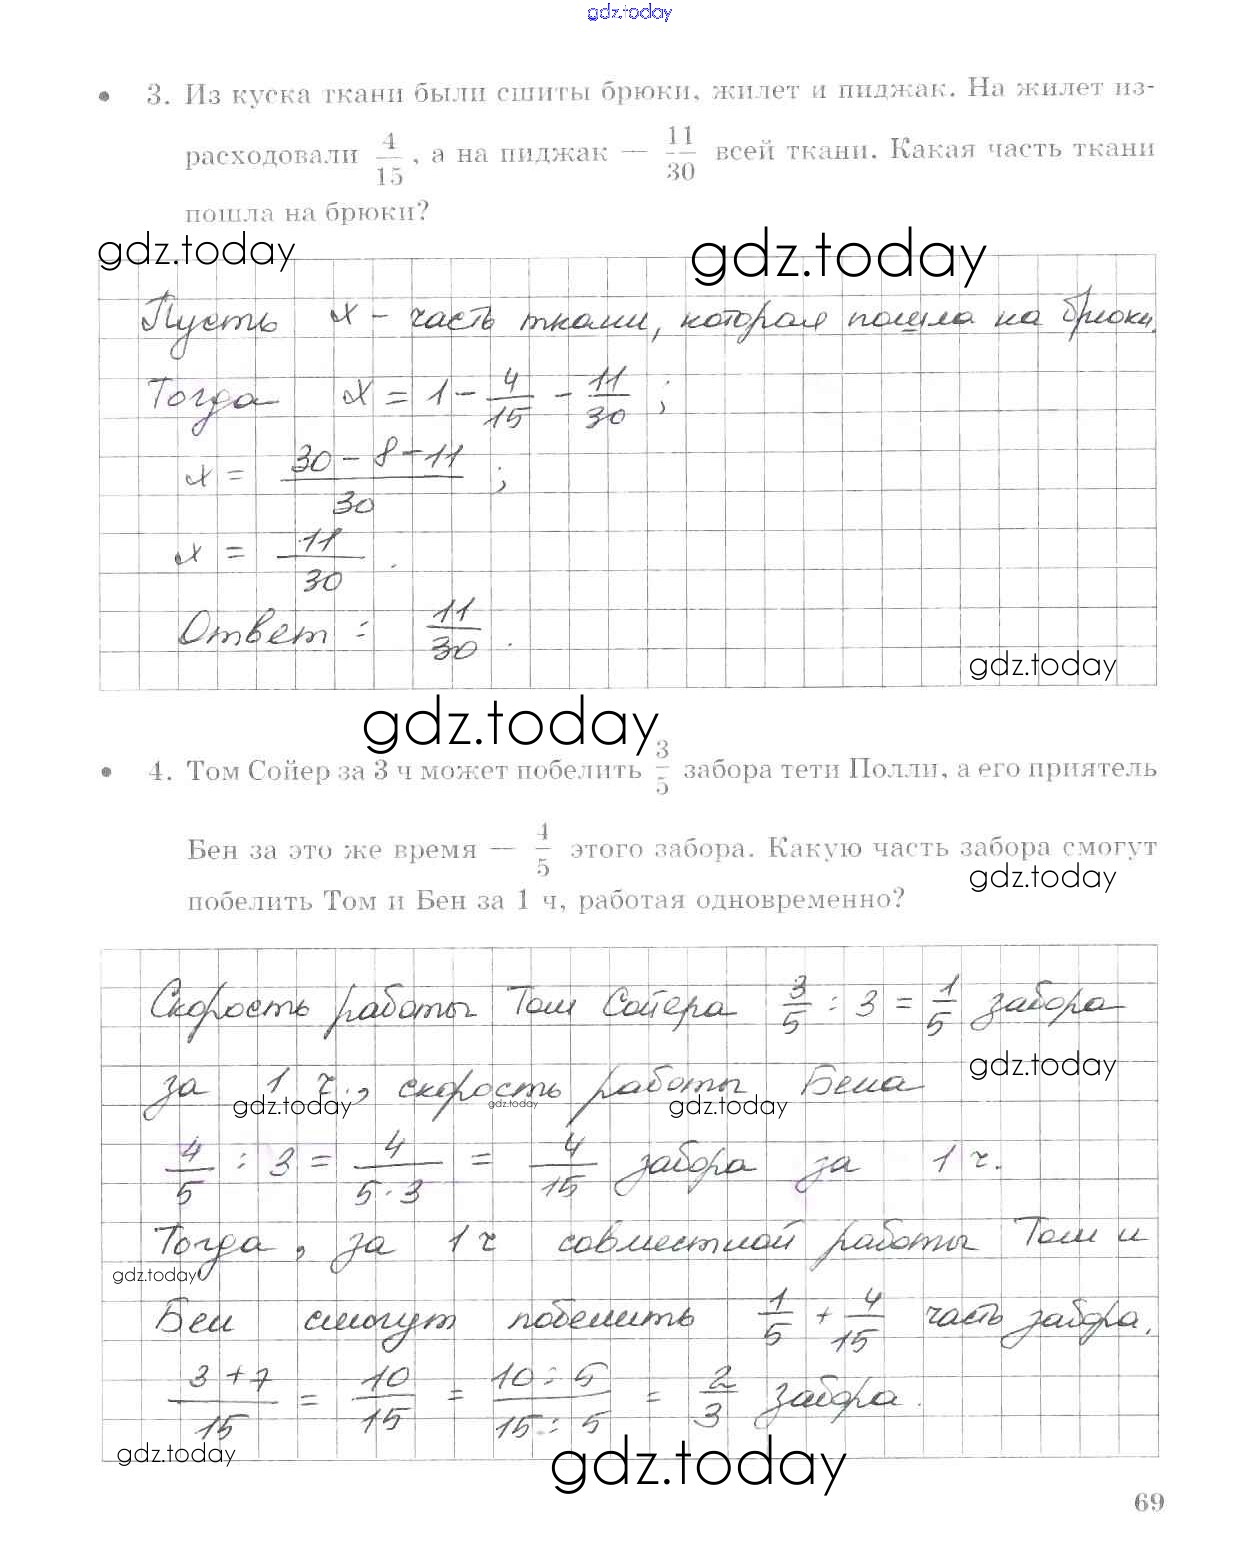 gdz.today
3. Из куска ткани были сшиты брюки, жилет и пиджак. На жилет из-
расходовали 4/15, а на пиджак — 11/30 всей ткани. Какая часть ткани
пошла на брюки?
gdz.today gdz.today
Пусть x - часть ткани, которая пошла на брюки.
Тогда x = 1 - 4/15 - 11/30 ;
x = (30 - 8 - 11)/30 ;
x = 11/30 .
Ответ : 11/30 .
gdz.today
gdz.today
4. Том Сойер за 3 ч может побелить 3/5 забора тети Полли, а его приятель
Бен за это же время — 4/5 этого забора. Какую часть забора смогут
gdz.today
побелить Том и Бен за 1 ч, работая одновременно?
Скорость работы Том Сойера 3/5 : 3 = 1/5 забора
gdz.today
за 1 ч., скорость работы Бена
gdz.today gdz.today gdz.today
4/5 : 3 = 4/(5·3) = 4/15 забора за 1 ч.
Тогда, за 1 ч совместной работы Том и
gdz.today
Бен смогут побелить 1/5 + 4/15 часть забора.
(3+7)/15 = 10/15 = (10:5)/(15:5) = 2/3 забора.
gdz.today gdz.today
69